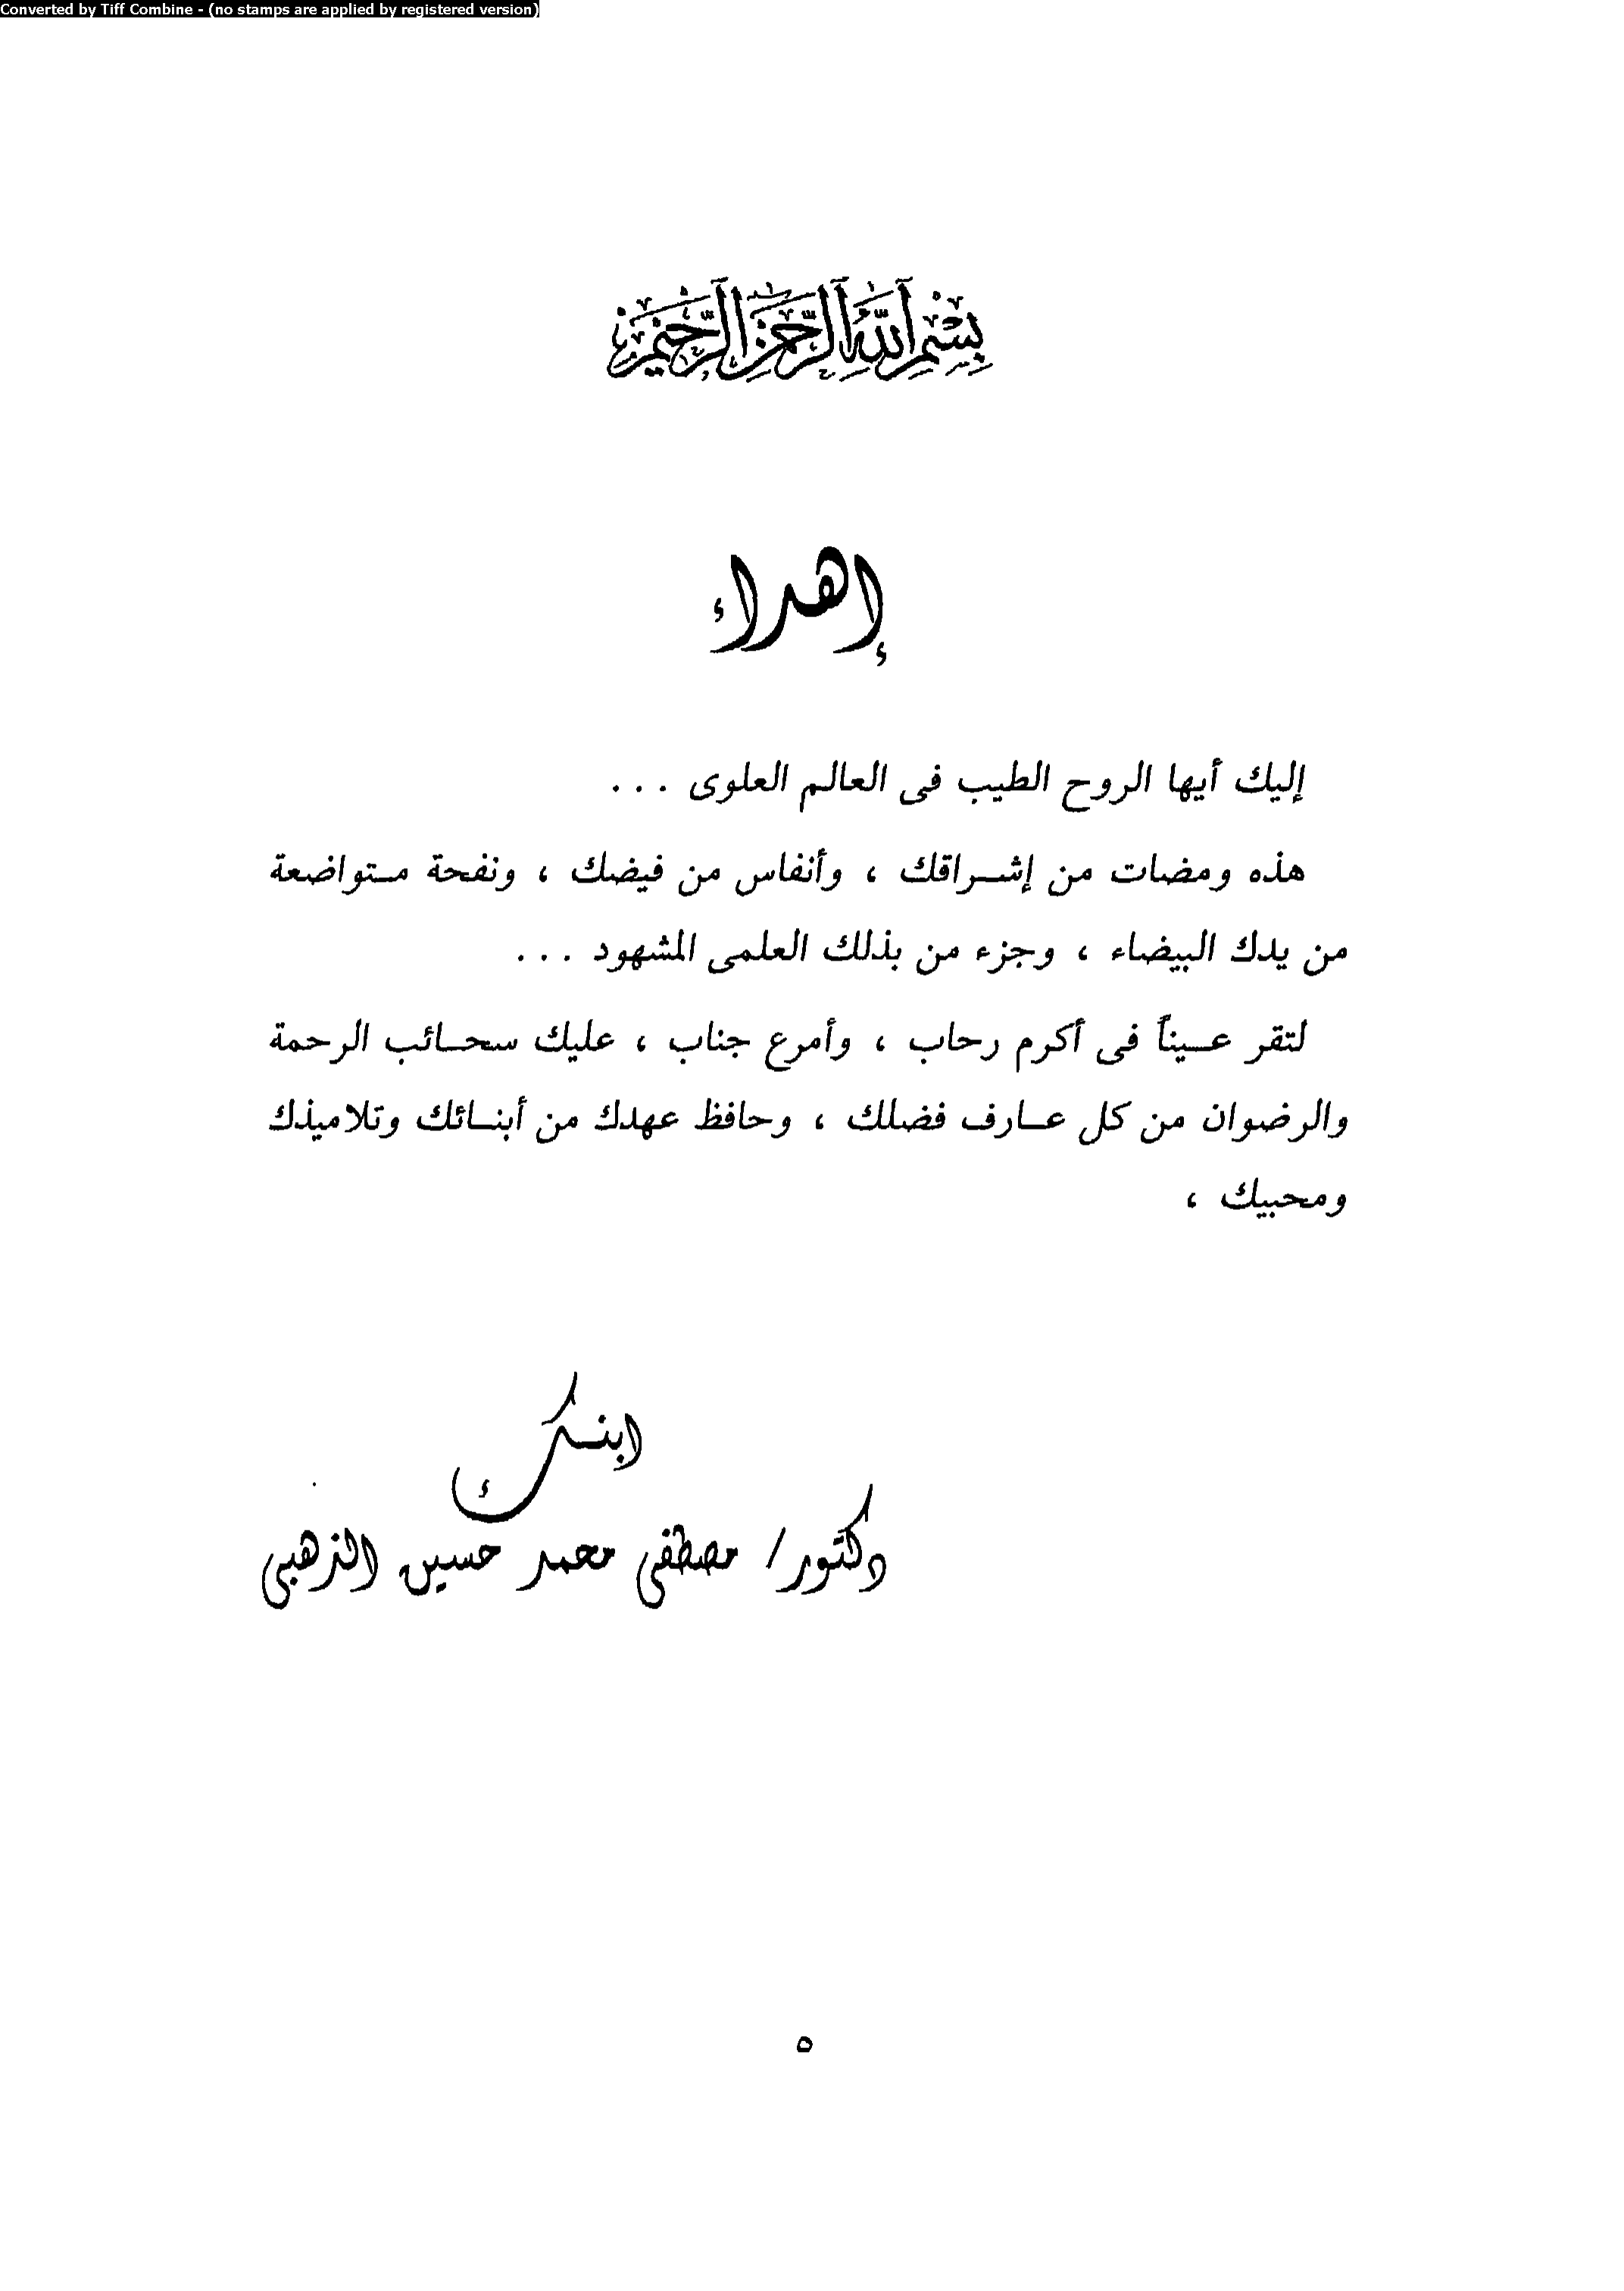 Converted by Tiff Combine - (no stamps are applied by registered version)
بِسْمِ اللَّهِ الرَّحْمَٰنِ الرَّحِيمِ
إهداء
إليك أيها الروح الطيب فى العالم العلوى ...
هذه ومضات من إشراقك ، وأنفاس من فيضك ، ونفحة متواضعة
من يدك البيضاء ، وجزء من بذلك العلمى المشهود ...
لتقر عيناً فى أكرم رحاب ، وأمرع جناب ، عليك سحائب الرحمة
والرضوان من كل عارف فضلك ، وحافظ عهدك من أبنائك وتلاميذك
ومحبيك ،
ابنك
دكتور/ مصطفى محمد حسين الذهبى
٥